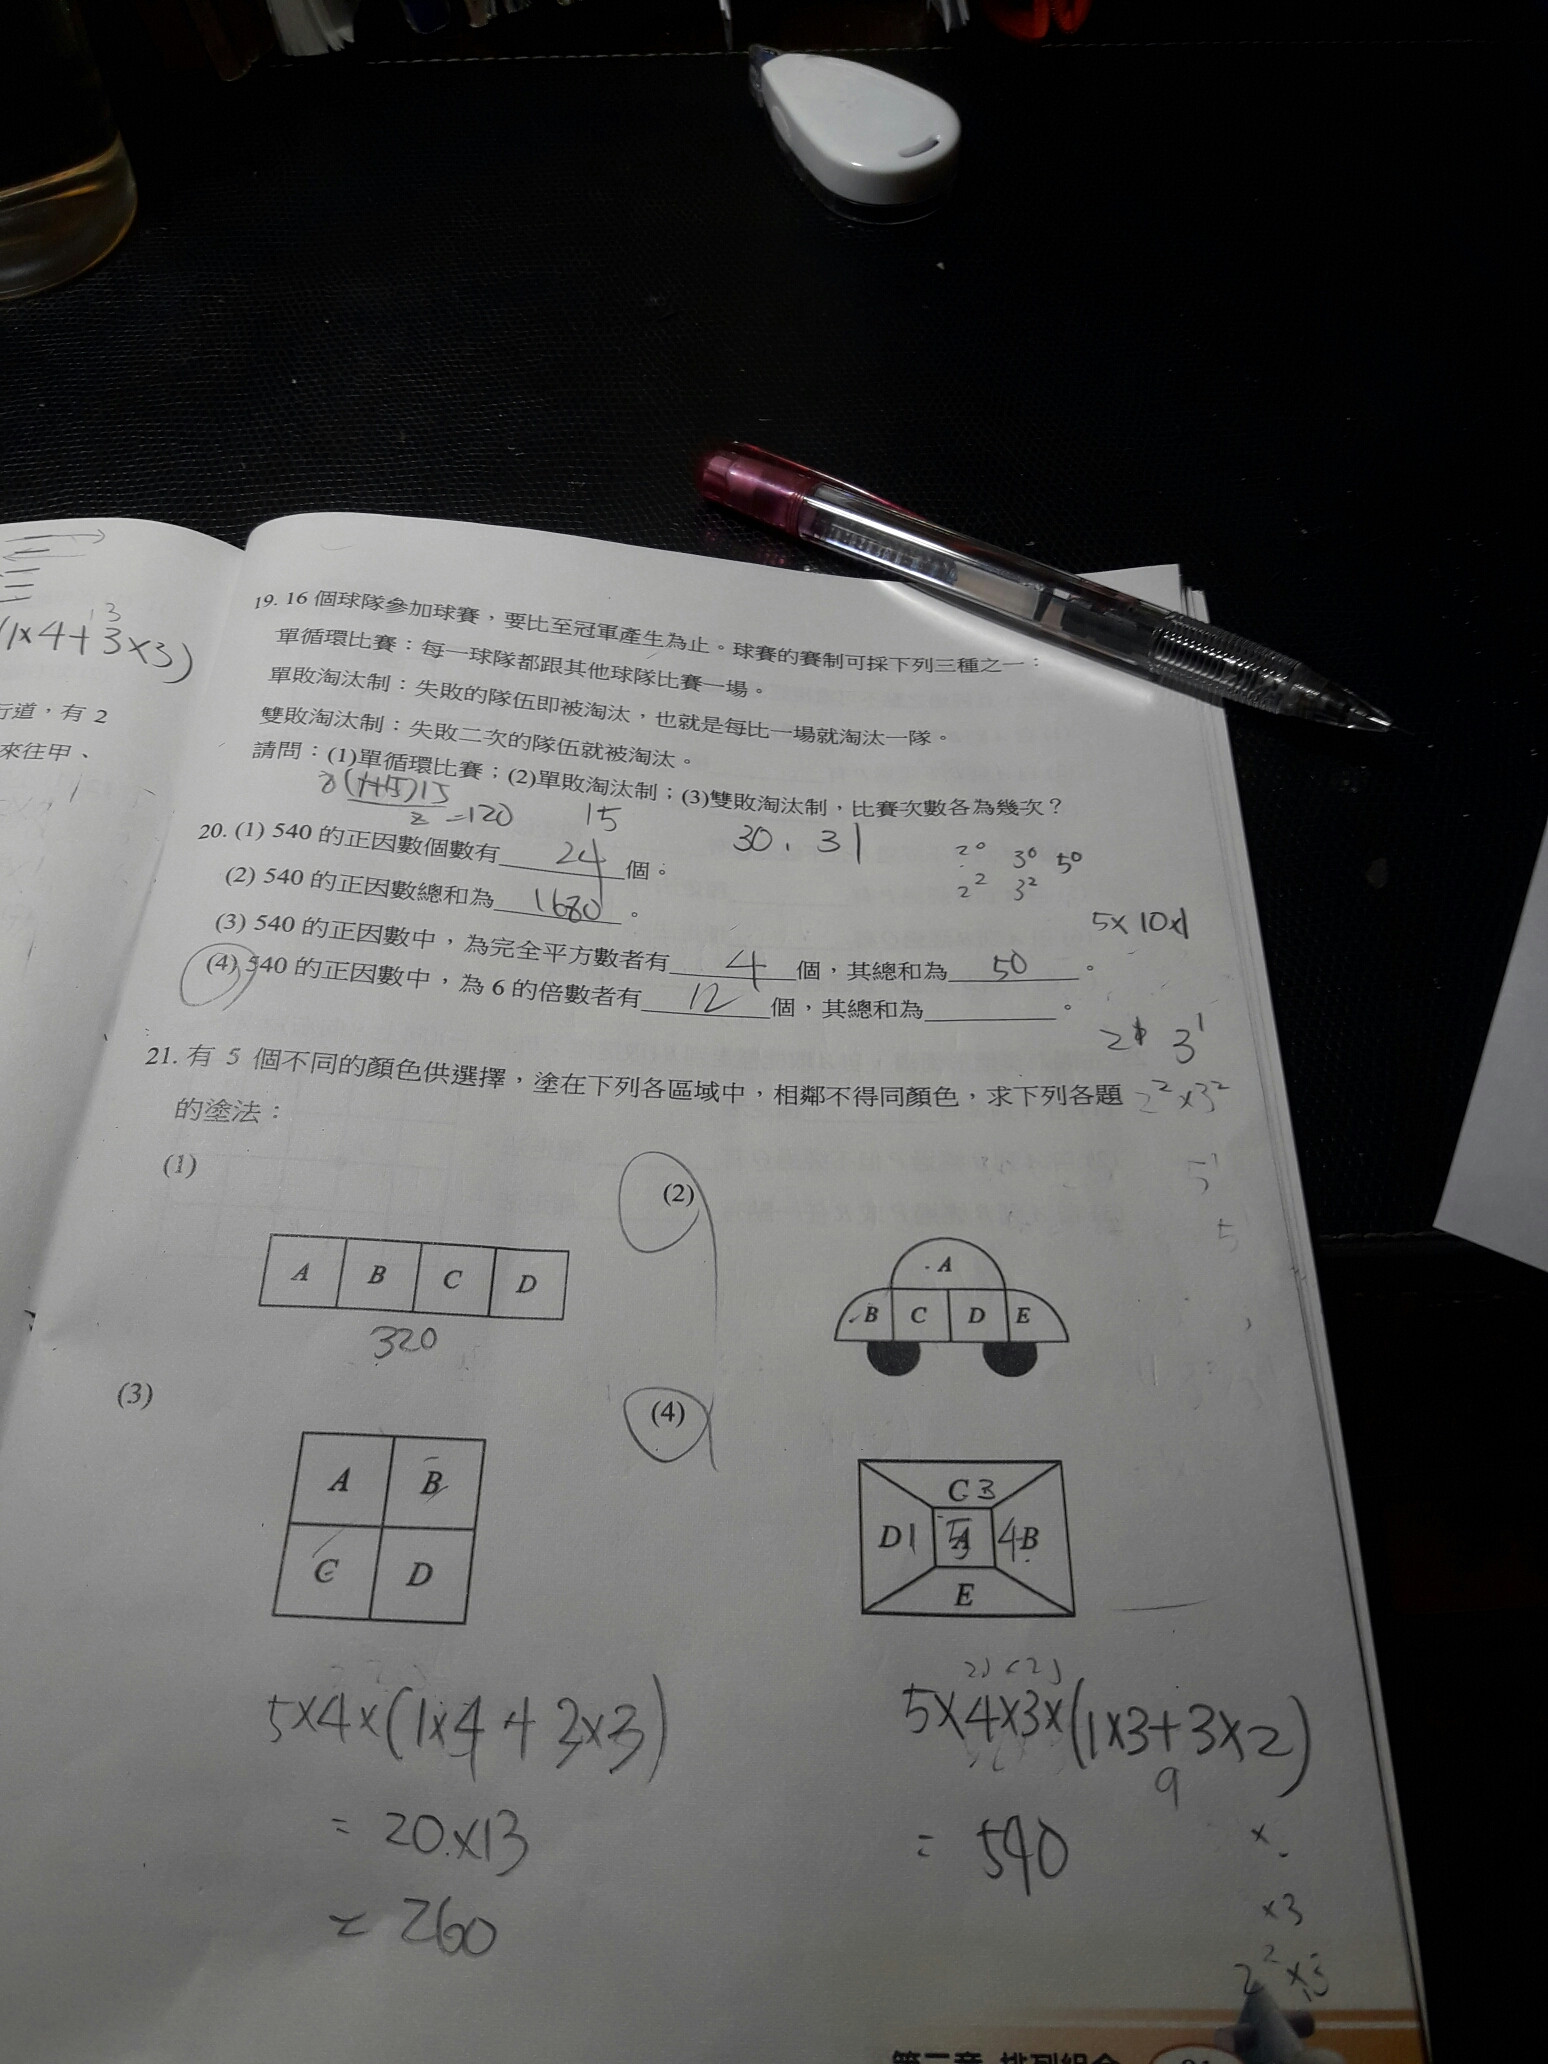 1×4+3×3)
13
行道，有 2
來往甲、
19. 16 個球隊參加球賽，要比至冠軍產生為止。球賽的賽制可採下列三種之一：
單循環比賽：每一球隊都跟其他球隊比賽一場。
單敗淘汰制：失敗的隊伍即被淘汰，也就是每比一場就淘汰一隊。
雙敗淘汰制：失敗二次的隊伍就被淘汰。
請問：(1)單循環比賽；(2)單敗淘汰制；(3)雙敗淘汰制，比賽次數各為幾次？
(1+15)15
2 =120
15
30、31
20. (1) 540 的正因數個數有 24 個。
(2) 540 的正因數總和為 1680 。
2⁰ 3⁰ 5⁰
2² 3²
5×10×1
(3) 540 的正因數中，為完全平方數者有 4 個，其總和為 50 。
(4) 540 的正因數中，為 6 的倍數者有 12 個，其總和為 。
3¹
2²×3²
5¹
5
21. 有 5 個不同的顏色供選擇，塗在下列各區域中，相鄰不得同顏色，求下列各題
的塗法：
(1)
A B C D
320
(2)
A
B C D E
(3)
A B
C D
5×4×(1×4+3×3)
= 20×13
= 260
(4)
C 3
D 1 A 5 4 B
E
5×4×3×(1×3+3×2)
9
= 540
×3
2²×
第二章 排列組合